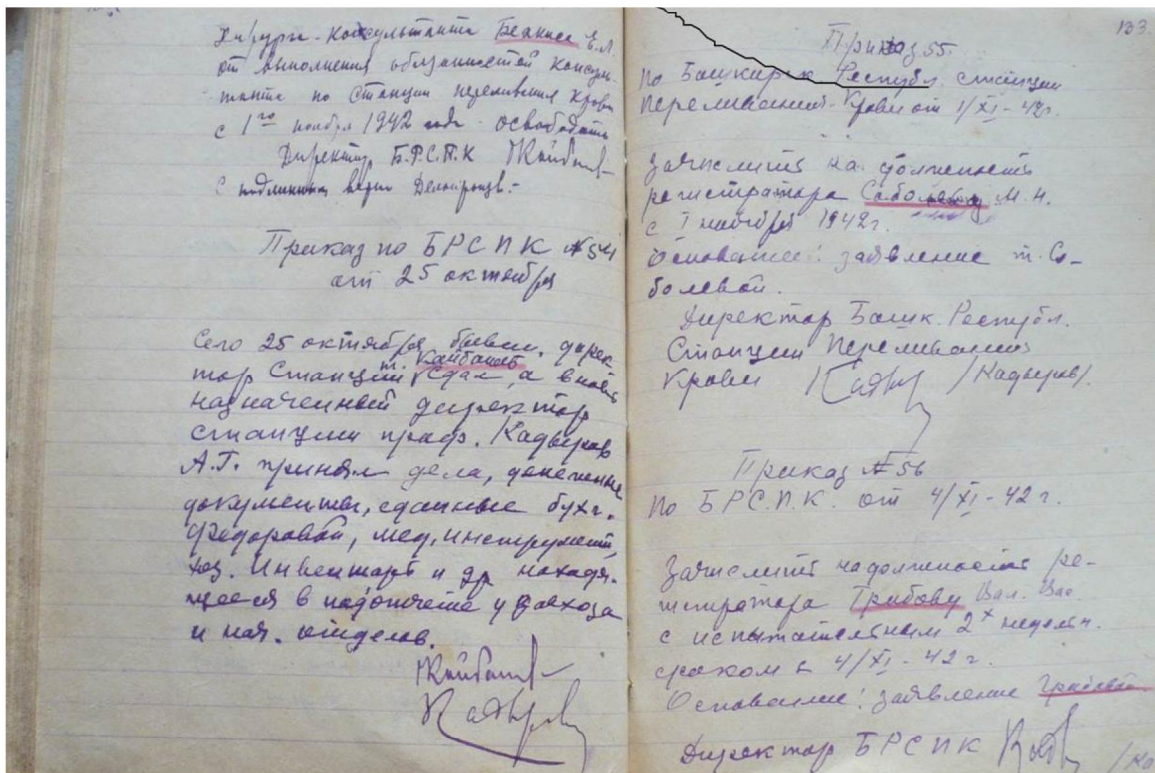 Хирурга-консультанта Беркнес Е.Л.
от выполнения обязанностей консуль-
танта по Станции переливания Крови
с 1го ноября 1942 года освободить
Директор Б.Р.С.П.К
С подлинным верно
Приказ по БРСПК №54
от 25 октября
Сего 25 октября бывш. дирек-
тор Станции т. Кайбашев сдал, а вновь
назначенный директор
станции проф. Кадыров
А.Г. принял дела, денежные
документы, сданные бухг.
Федоровой, мед. инструмент,
хоз. Инвентарь и др находя-
щееся в подотчете у завхоза
и нач. отделов.
133.
Приказ 55.
По Башкирск Республ. станции
переливания Крови от 1/XI-42г.
Зачислить на должность
регистратора Соболеву М.Н.
с 1 ноября 1942г.
Основание: заявление т. Со-
болевой.
Директор Башк. Республ.
Станции Переливания
Крови /Кадыров/.
Приказ №56
По БРС.П.К. от 4/XI-42г.
Зачислить на должность ре-
гистратора Грибову Вал. Вас.
с испытательным 2х недельн.
сроком с 4/XI-42г.
Основание: заявление Грибовой
Директор БРСПК